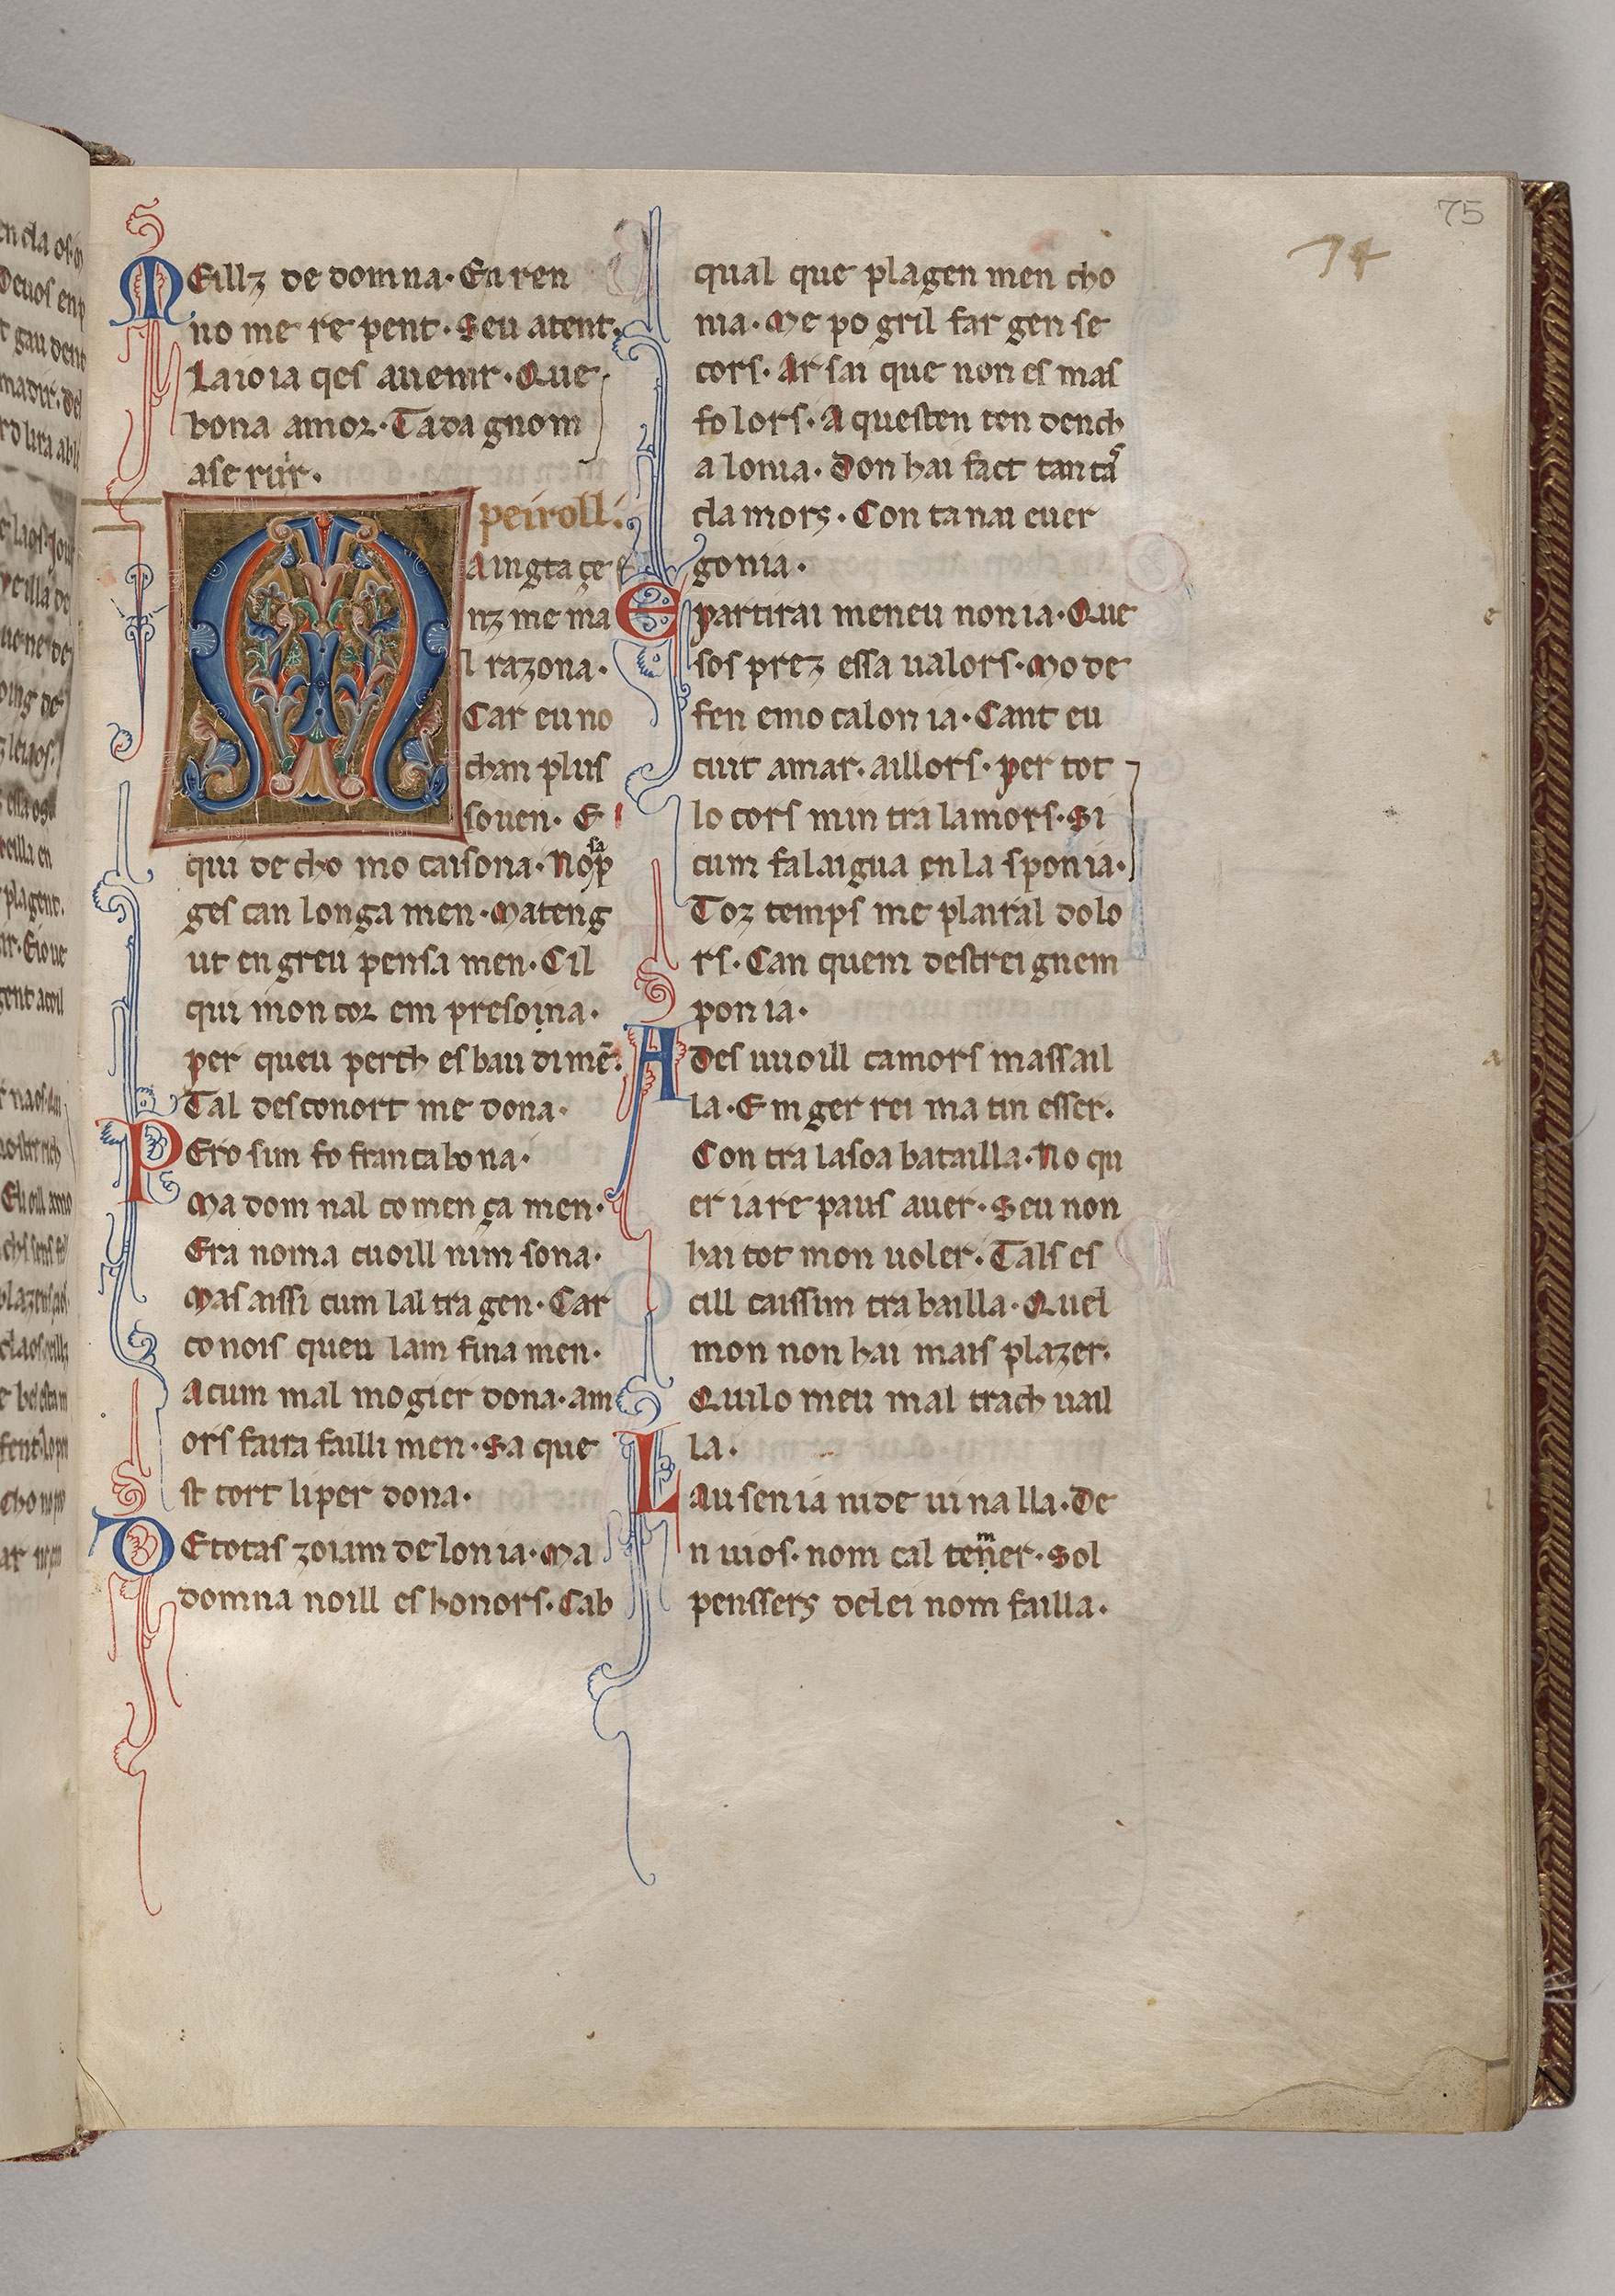 75
74
MEillz de domna. En ren
no me re pent. Seu atent.
La ioia qes auenir. Que
bona amor. Tada gnom
ase rur.
peiroll.
MAingta çe
nz me ma
l razona.
Car eu no
chan plus
souen. E
qui de cho mo caisona. Nosap
ges can longa men. Mateng
ut en greu pensa men. Cil
qui mon cor em presoina.
per queu perch es bau dimē.
Tal desconort me dona.
PEro sun fo fran ca bo na.
Ma dom nal co men ça men.
Era noma cuoill nim sona.
Mas aissi cum lal tra gen. Car
conois queu lam fina men.
Acum mal mogier dona. am
ors faira failli men. Sa que
st tort li per dona.
DE totas zoiam de lon ia. Ma
domna noill es honors. Cab
qual que plagen men cho
nia. Me po gril far gen se
cors. Ar sai que non es mas
fo lors. A questen ten dench
a lonia. Don hai fact tan ta
cla mors. Con ta nai euer
gonia.
E partirai meneu non ia. Que
sos prez essa ualors. Mo de
fen emo calon ia. Cant eu
cuit amar. aillors. per tot
lo cors min tra lamors. Si
cum falaigua en la spon ia.
Toz temps me plairal dolo
rs. Can quem destrei gnem
pon ia.
ADes uuoill camors massail
la. E m ger rei ma tin esser.
Con tra lasoa batailla. No qu
er ia re paus auer. Seu non
hai tot mon uoler. Tals es
cill caissim tra bailla. Quel
mon non hai mais plazer.
Quilo meu mal trach uail
la.
LAu sen ia ni de ui na lla. De
n uios. nom cal temer. Sol
penssers delei nom failla.
e
a
l